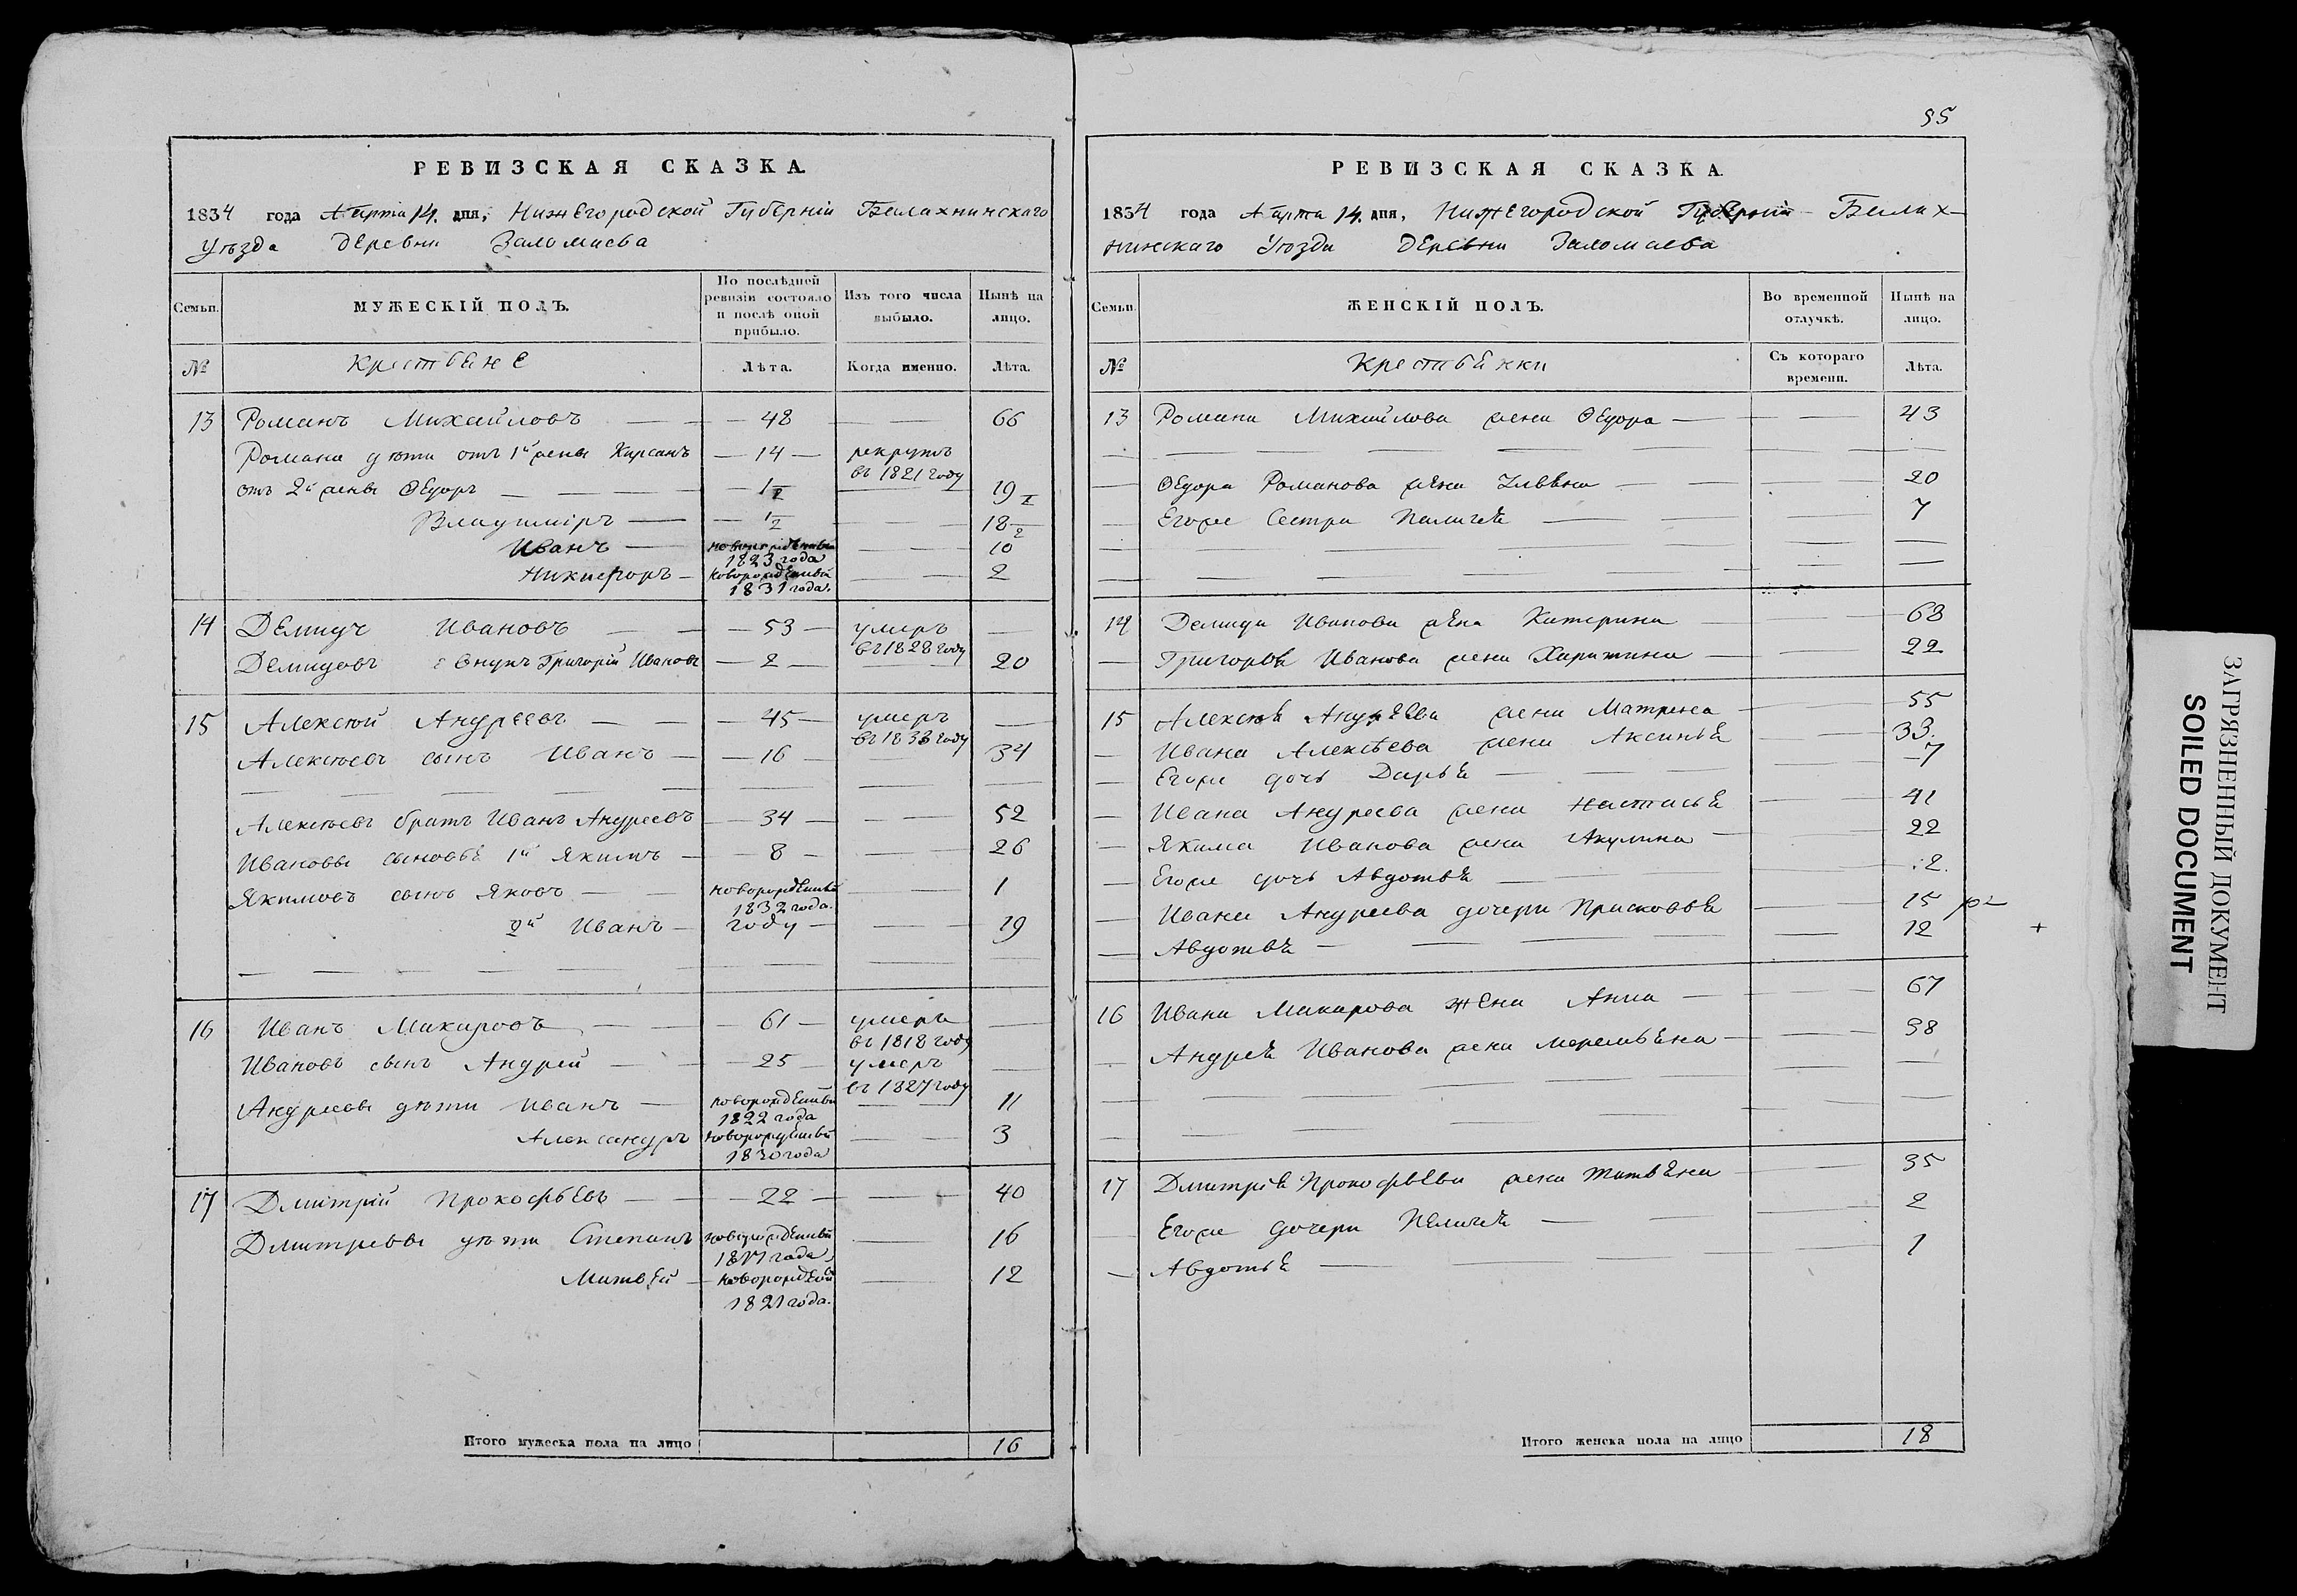 95
РЕВИЗСКАЯ СКАЗКА.
1834 года Марта 14. дня, Нижегородской Губерніи Балахнинскаго
Уѣзда деревни Заломаева
Семьи.
МУЖЕСКІЙ ПОЛЪ.
По послѣдней ревизіи состояло и послѣ оной прибыло.
Изъ того числа выбыло.
Нынѣ на лицо.
№
Крестьяне
Лѣта.
Когда именно.
Лѣта.
13 Романъ Михайловъ — 48 — 66
Романа дѣти отъ 1й жены Кирсанъ — 14 — рекрутъ въ 1821 году
отъ 2й жены Ѳедоръ — 1½ — 19½
Владимiръ — ½ — 18½
Иванъ — новорожденный 1823 года — 10
Никифоръ — новорожденный 1831 года. — 2
14 Демидъ Ивановъ — 53 — умеръ въ 1828 году —
Демидовъ внукъ Григорій Ивановъ — 2 — 20
15 Алексѣй Андреевъ — 45 — умеръ въ 1833 году —
Алексѣевъ сынъ Иванъ — 16 — 34
Алексѣевъ братъ Иванъ Андреевъ — 34 — 52
Ивановы сыновья 1й Якимъ — 8 — 26
Якимовъ сынъ Яковъ — новорожденный 1832 года. — 1
2й Иванъ — году — 19
16 Иванъ Макаровъ — 61 — умеръ въ 1818 году —
Ивановъ сынъ Андрей — 25 — умеръ въ 1827 году —
Андреевы дѣти Иванъ — новорожденный 1822 года — 11
Александръ новорожденный 1830 года — 3
17 Дмитрій Прокофьевъ — 22 — 40
Дмитревы дѣти Степанъ новорожденный 1817 года — 16
Матвей — новорожденный 1821 года. — 12
Итого мужеска пола на лицо 16
РЕВИЗСКАЯ СКАЗКА.
1834 года Марта 14. дня, Нижегородской Губерніи Балах-
нинскаго Уѣзда деревни Заломаева
Семьи.
ЖЕНСКІЙ ПОЛЪ.
Во временной отлучкѣ.
Нынѣ на лицо.
№
Крестьянки
Съ котораго времени.
Лѣта.
13 Романа Михайлова жена Ѳедора — 43
Ѳедора Романова жена — 20
Егоже Сестра Палагея — 7
14 Демида Иванова жена Катерина — 68
Григорья Иванова жена Харитина — 22
15 Алексѣя Андреева жена Матрена — 55
Ивана Алексѣева жена Аксинья — 33.
Егоже дочь Дарья — 7
Ивана Андреева жена Настасья — 41
Якима Иванова жена Акулина — 22
Егоже дочь Авдотья — 2.
Ивана Андреева дочери Прасковья — 15
Авдотья — 12
+
16 Ивана Макарова жена Анна — 67
Андрея Иванова жена Маремьяна — 38
17 Дмитрія Прокофьева жена Татьяна — 35
Егоже дочери Пелагея — 2
Авдотья — 1
Итого женска пола на лицо 18
ЗАГРЯЗНЕННЫЙ ДОКУМЕНТ
SOILED DOCUMENT